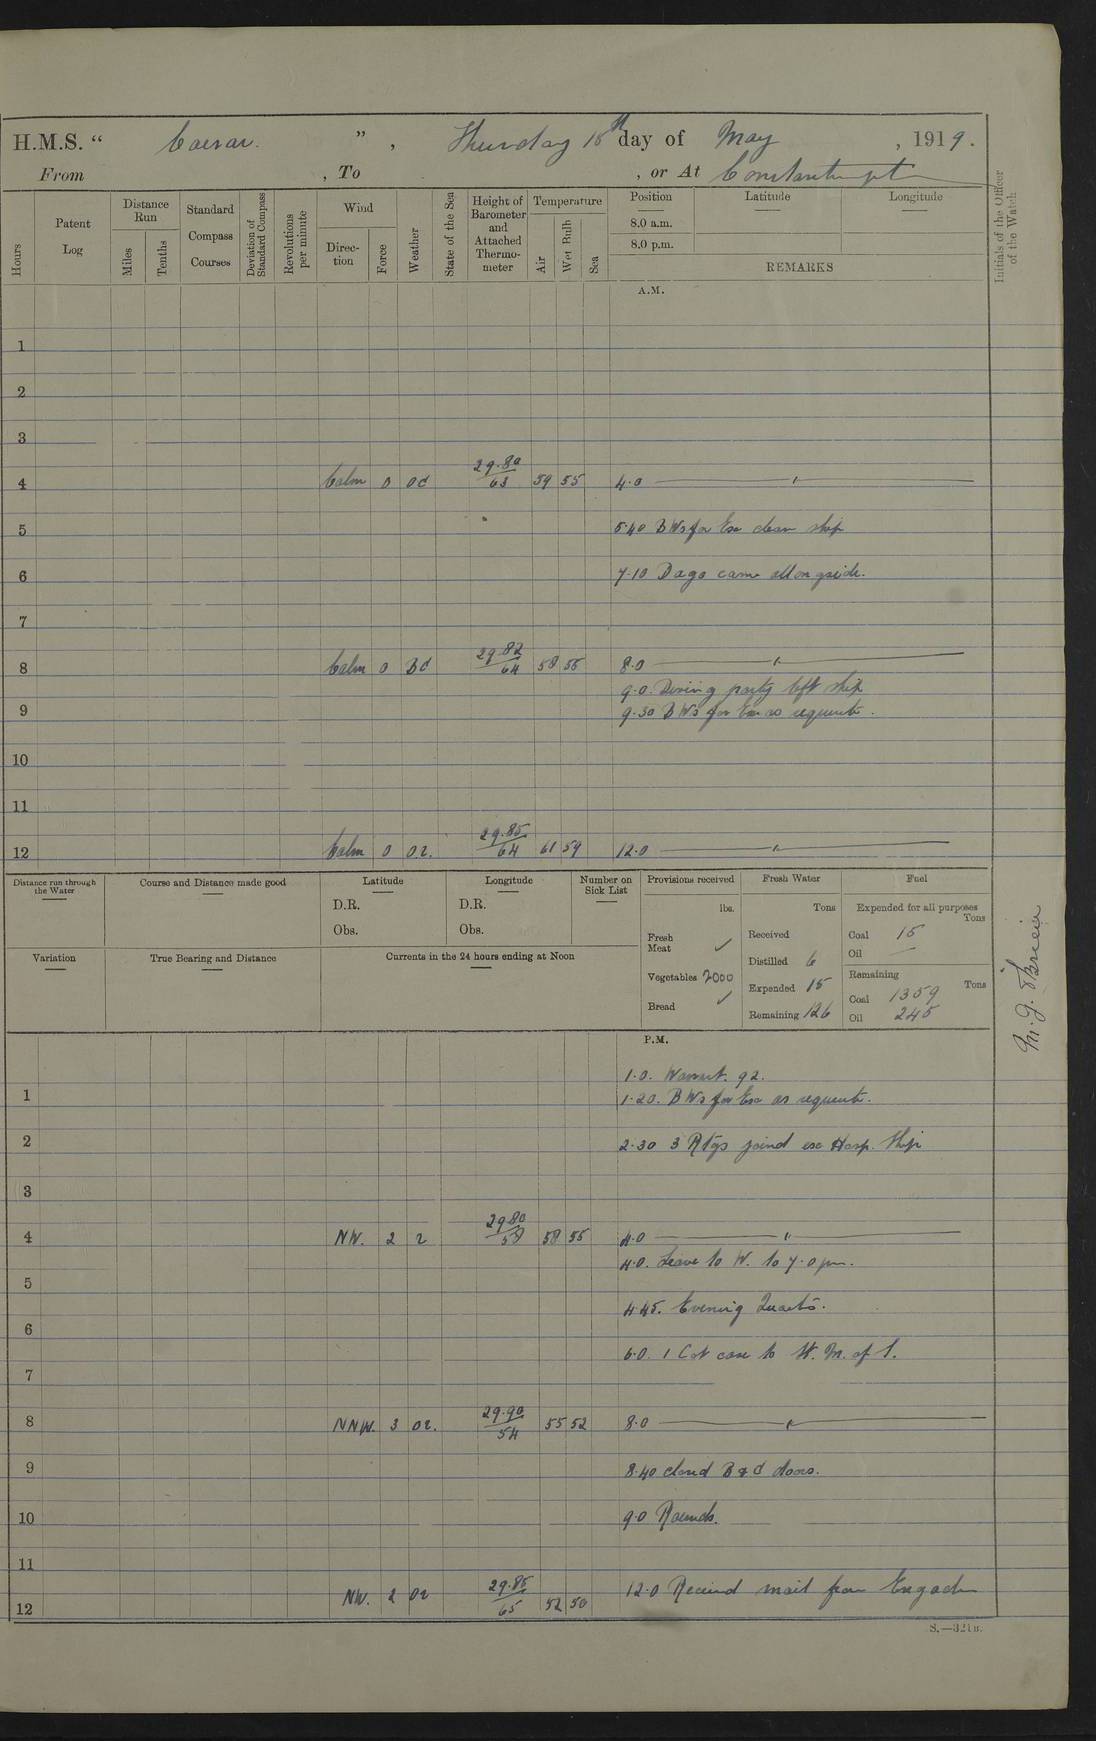 H.M.S. “ Caesar. ” , Thursday 15th day of May , 1919.
From , To , or At Constantinople
Hours
Patent Log
Distance Run
Miles
Tenths
Standard Compass Courses
Deviation of Standard Compass
Revolutions per minute
Wind
Direc-tion
Force
Weather
State of the Sea
Height of Barometer and Attached Thermo-meter
Temperature
Air
Wet Bulb
Sea
Position
Latitude
Longitude
8.0 a.m.
8.0 p.m.
REMARKS
Initials of the Officer of the Watch
A.M.
1
2
3
4 Calm 0 od 29.80/63 59 55 4.0 — " —
5 5.40 BWs for Ex clean ship
6 7.10 Dago came allongside.
7
8 Calm 0 Bd 29.82/64 58 55 8.0 — " —
9.0. Diving party left ship
9 9.30 BWs for Ex as requisite.
10
11
12 Calm 0 or. 29.85/64 61 59 12.0 — " —
Distance run through the Water
Course and Distance made good
Latitude
D.R.
Obs.
Longitude
D.R.
Obs.
Number on Sick List
Variation
True Bearing and Distance
Currents in the 24 hours ending at Noon
Provisions received
lbs.
Fresh Meat ✓
Vegetables 2000
Bread ✓
Fresh Water
Tons
Received
Distilled 6
Expended 15
Remaining 126
Fuel
Expended for all purposes
Tons
Coal 15
Oil —
Remaining
Tons
Coal 1359
Oil 245
P.M.
1.0. Warrant. 92.
1 1.20. BWs for Ex as requisite.
2 2.30 3 Rtgs joined ex Hosp. Ship
3
4 NW. 2 r 29.80/58 58 55 4.0 — " —
4.0. Leave to W. to 7.0 pm.
5 4.45. Evening Quarters.
6
6.0. 1 Cot case to St. M. of S.
7
8 NNW. 3 or. 29.90/54 55 52 8.0 — " —
9 8.40 closed B & d doors.
10 9.0 Rounds.
11
12 NW. 2 or 29.85/65 52 50 12.0 Received mail from Engadine
S.—321B.